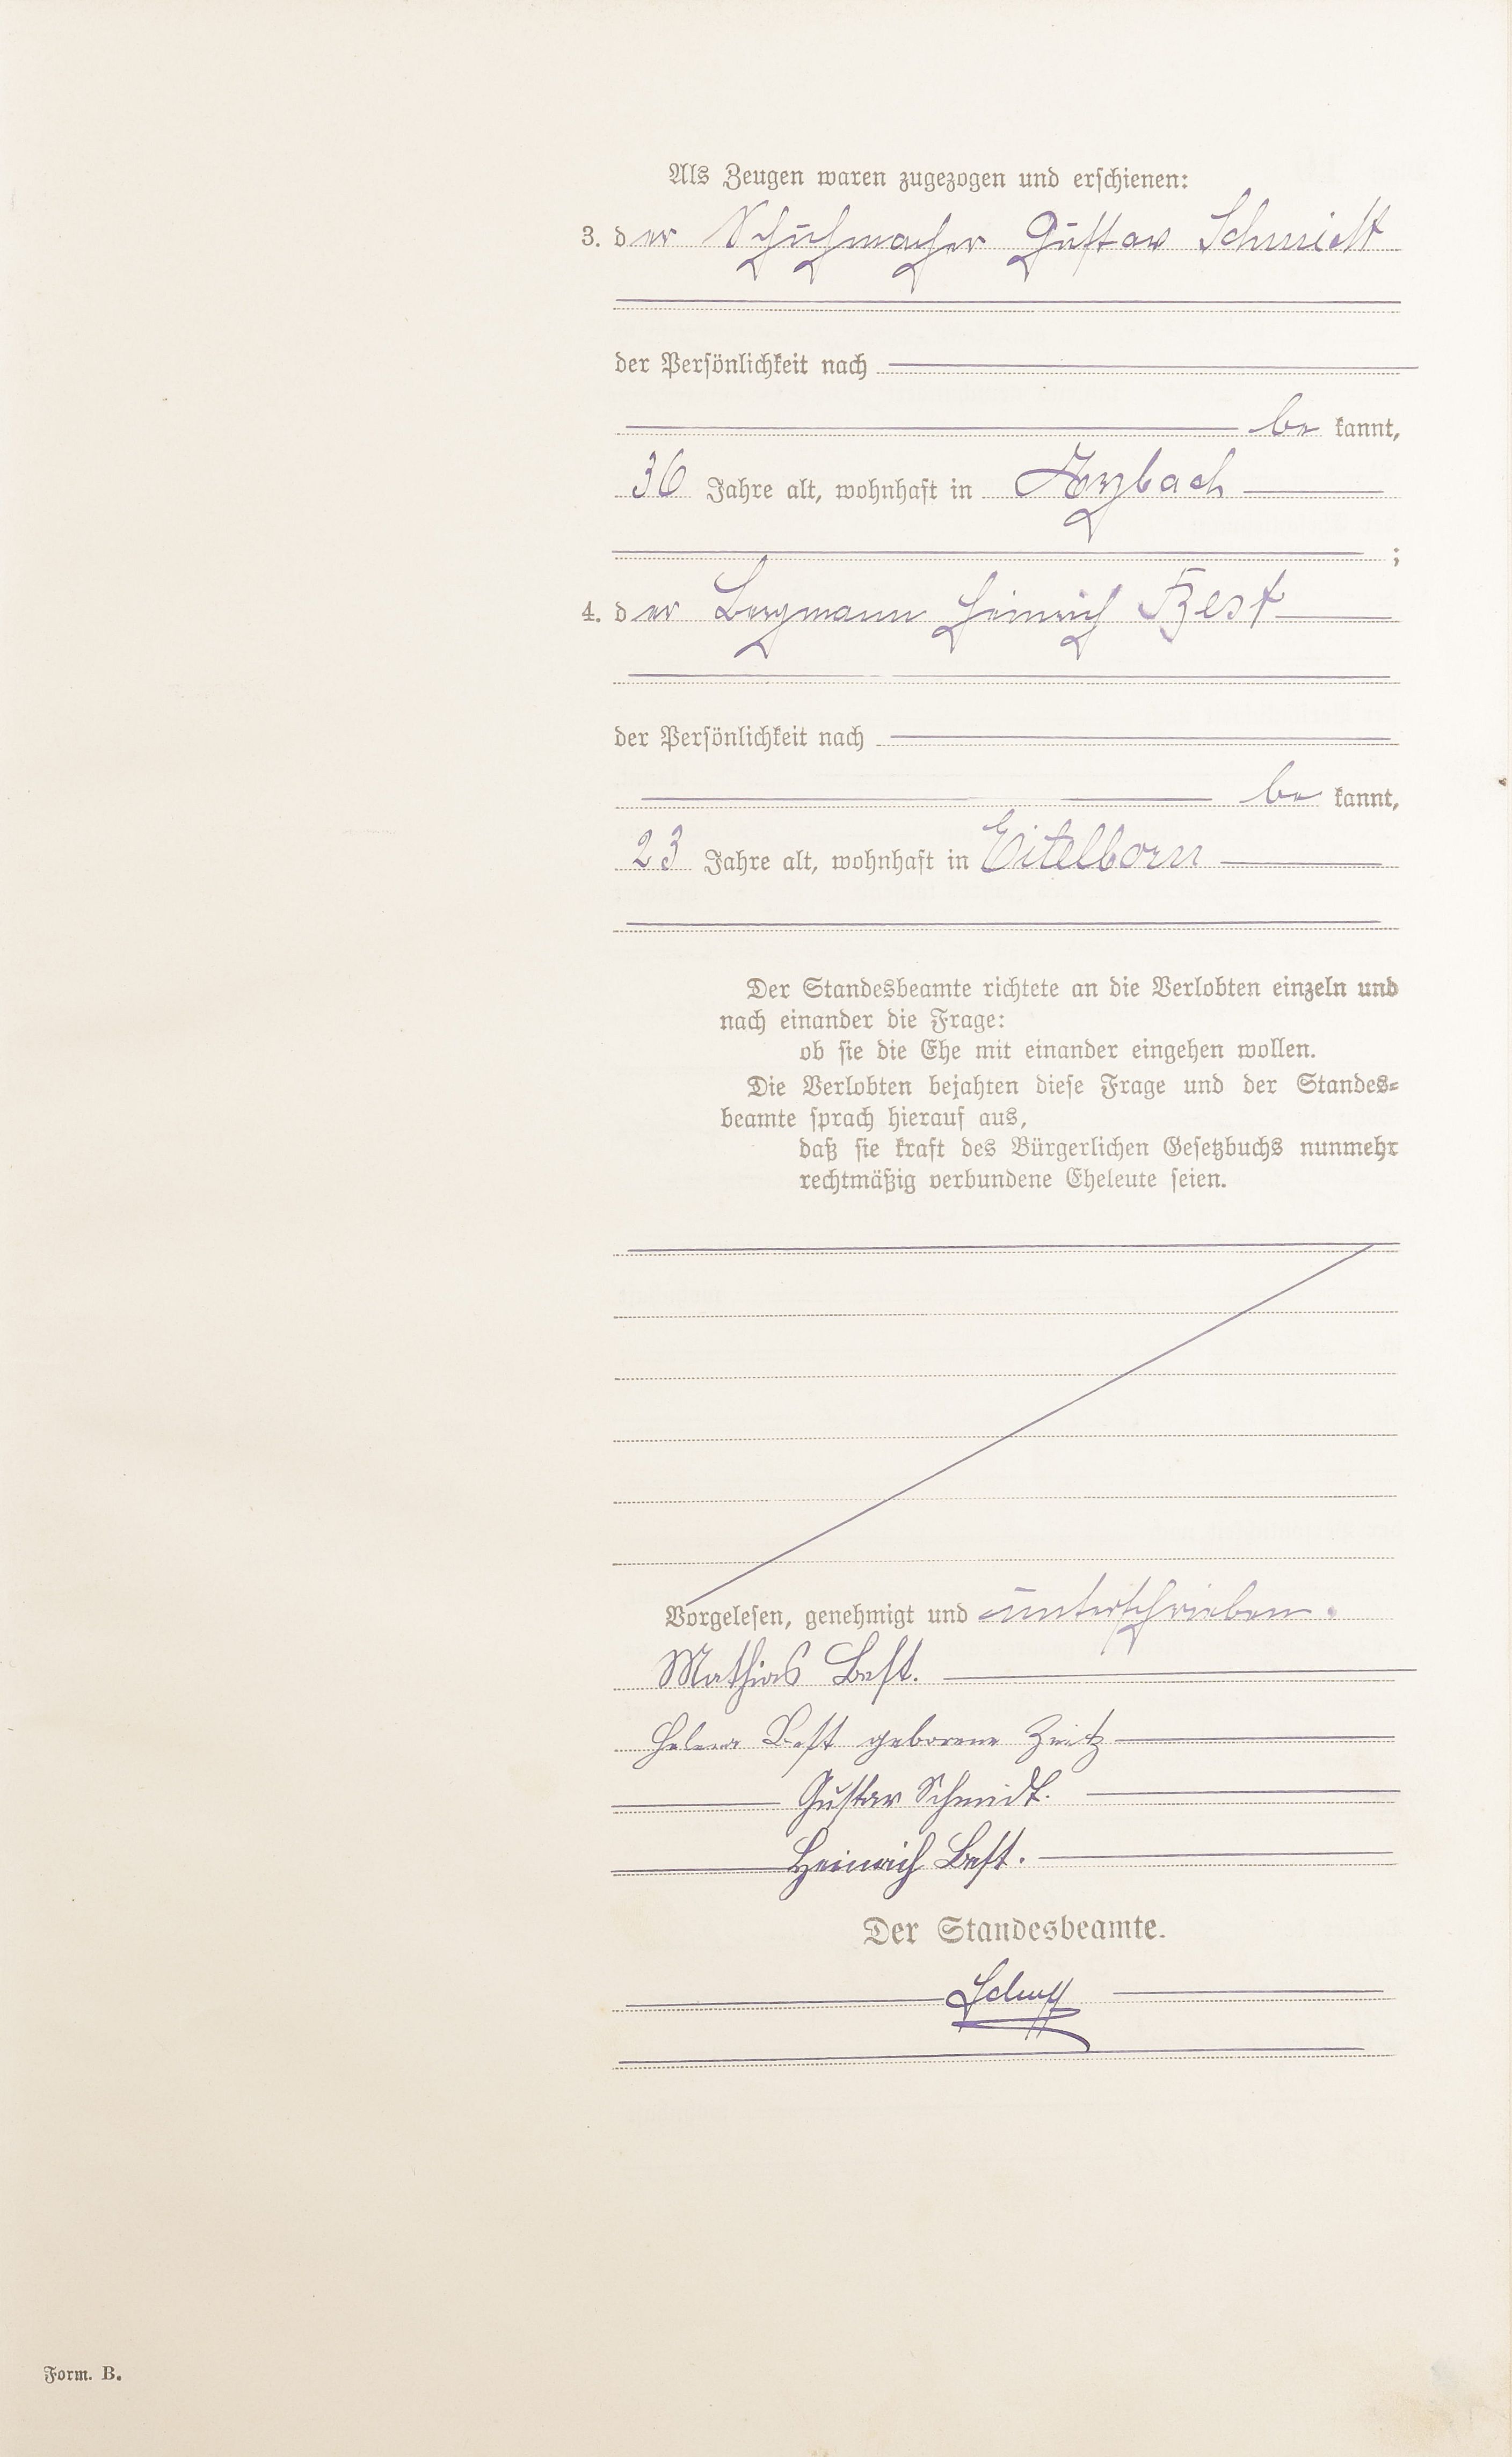 Als Zeugen waren zugezogen und erschienen:
3. der Schuhmacher Gustav Schmidt
der Persönlichkeit nach
be kannt,
36 Jahre alt, wohnhaft in Arzbach
;
4. der Bergmann Heinrich Best
der Persönlichkeit nach
be kannt,
23 Jahre alt, wohnhaft in Eitelborn
Der Standesbeamte richtete an die Verlobten einzeln und
nach einander die Frage:
ob sie die Ehe mit einander eingehen wollen.
Die Verlobten bejahten diese Frage und der Standes=
beamte sprach hierauf aus,
daß sie kraft des Bürgerlichen Gesetzbuchs nunmehr
rechtmäßig verbundene Eheleute seien.
Vorgelesen, genehmigt und unterschrieben.
Mathias Best.
Helena Best geborene
Gustav Schmidt.
Heinrich Best.
Der Standesbeamte.
Form. B.